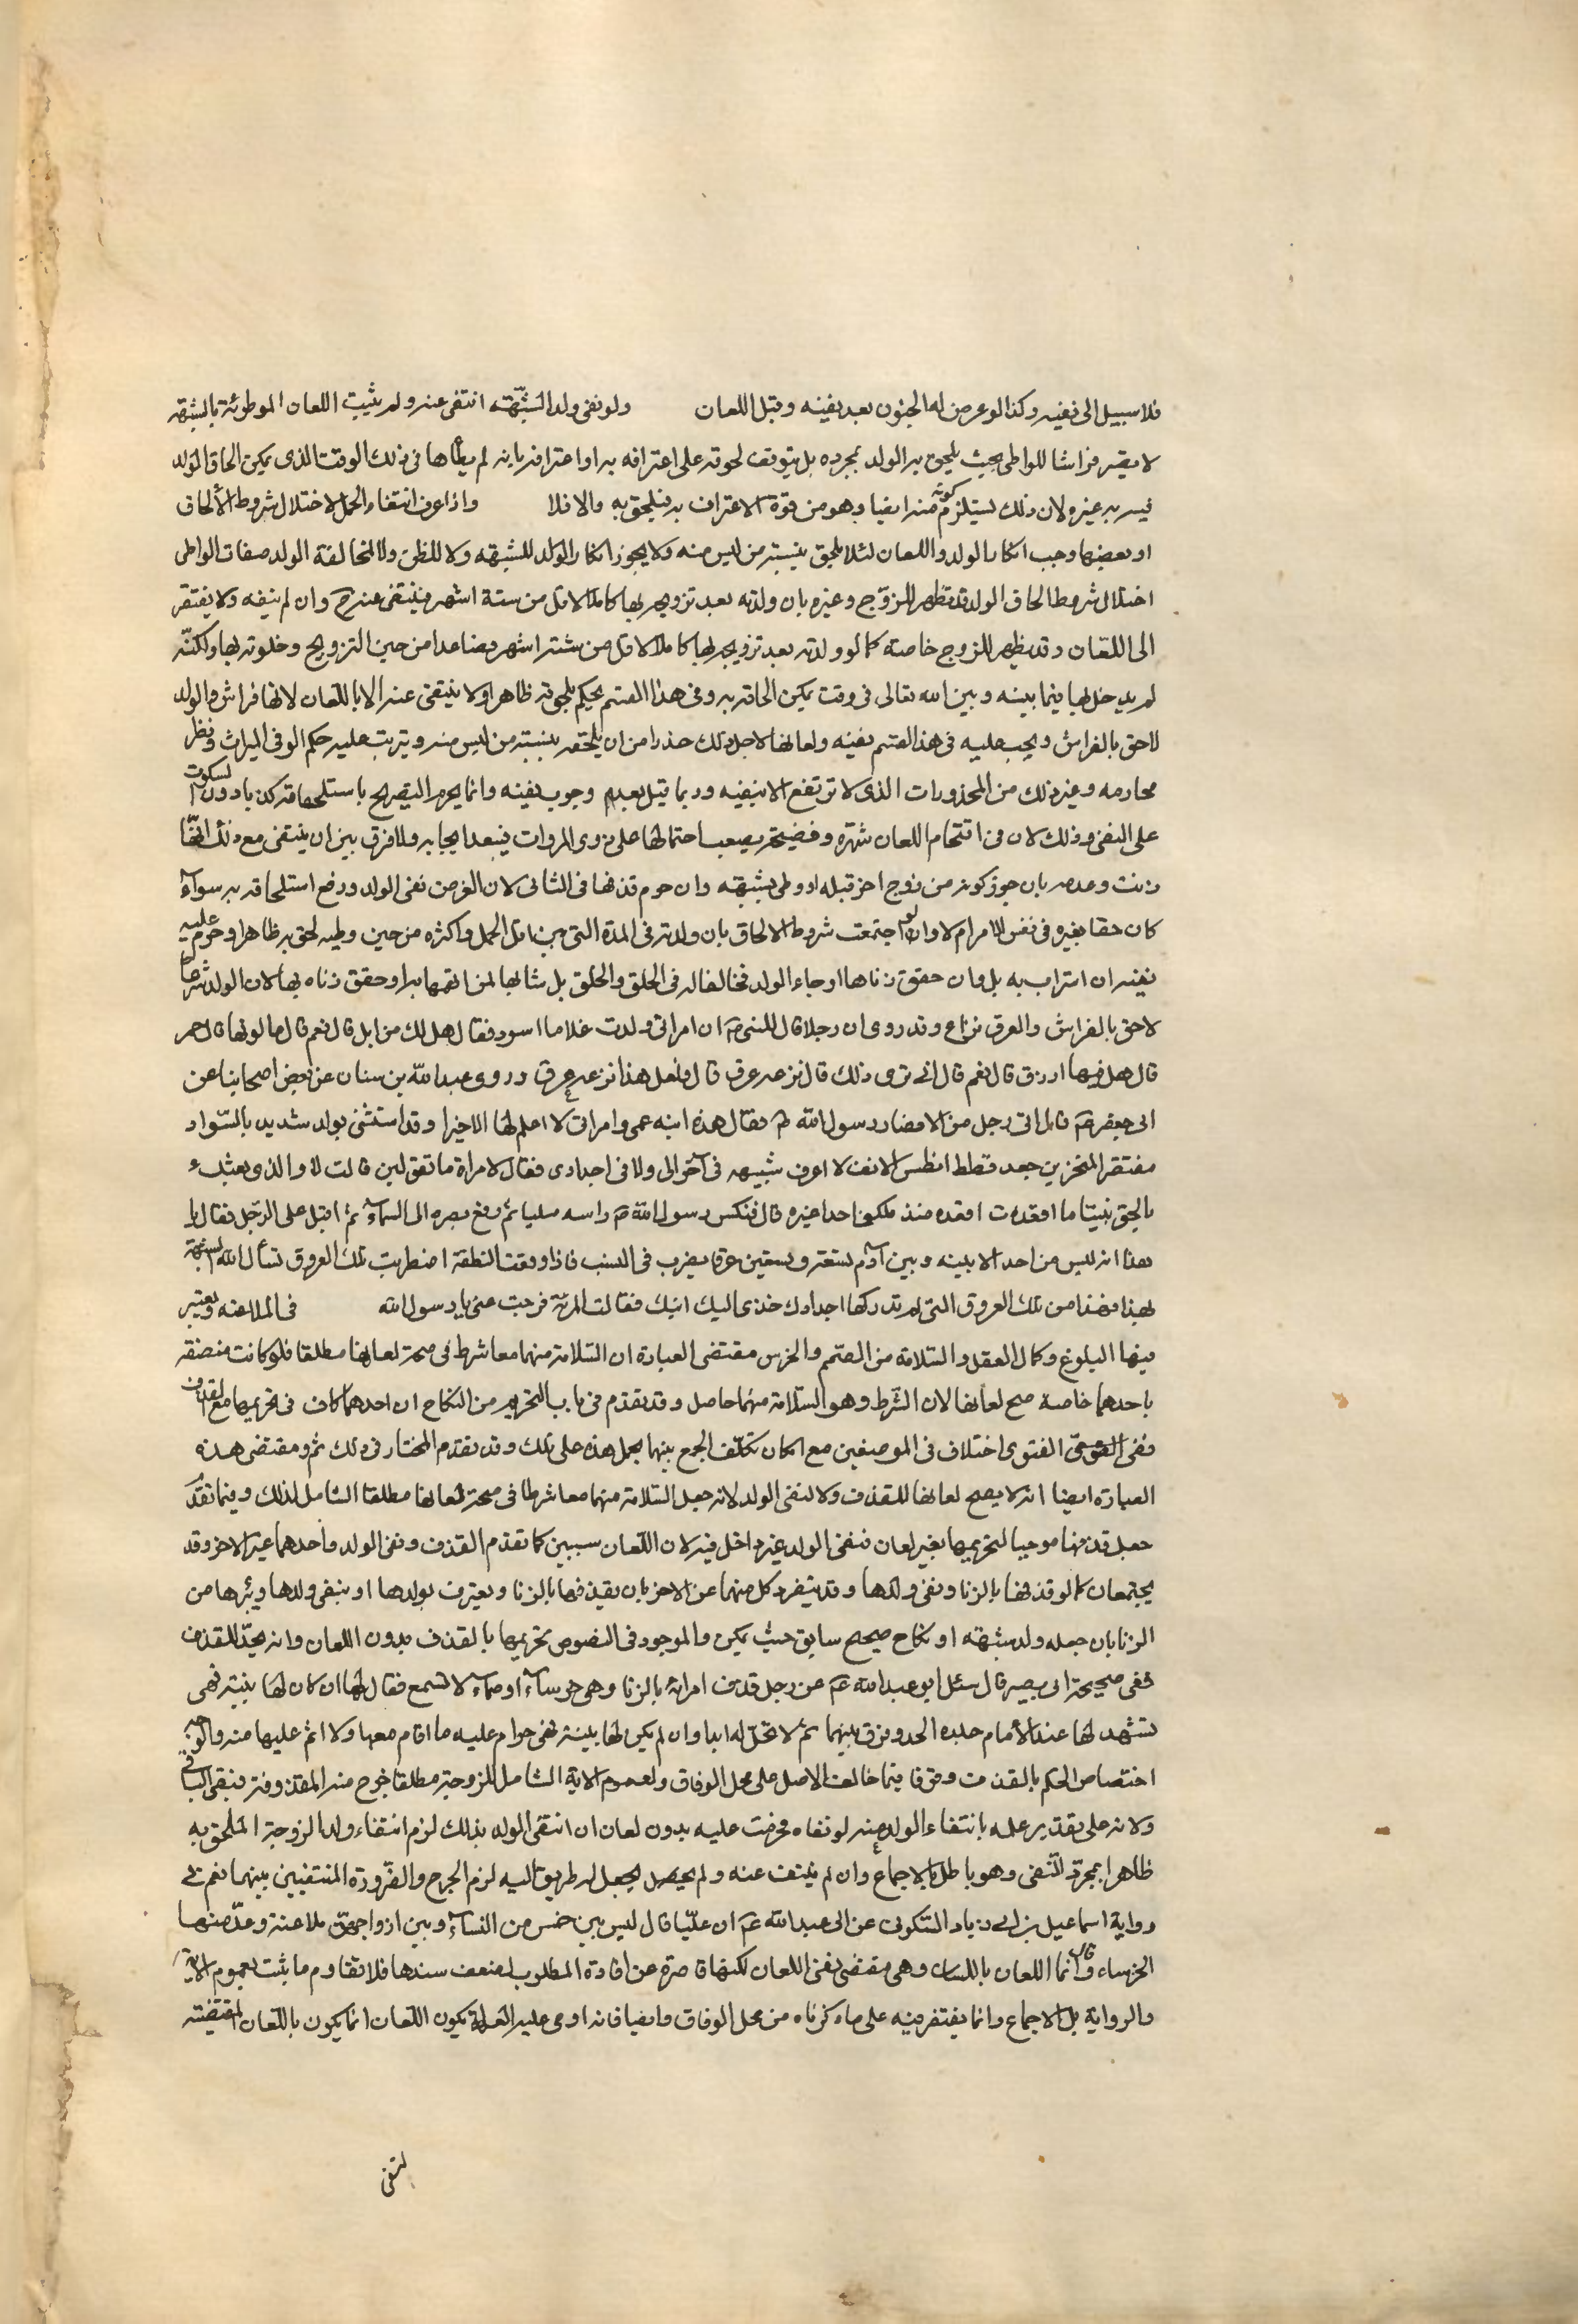 فلا سبيل الى نفيه وكذا لو عرض له الجنون بعد نفيه وقبل اللعان ولو نفى ولد الشبهة انتفى عنه ولم يثبت اللعان الموطوئة بالشبهة
لا تصير فراشا للواطى بحيث يلحق به الولد بمجرده بل يتوقف لحوقه على اعترافه به او اعترافه بانه لم يطأها فى ذلك الوقت الذى يمكن الحاق الولد
فيه به غيره ولان ذلك يستلزم كونه منه ايضا وهو من قوة الاعتراف به فيلحق به والا فلا واذا عرف انتفاء الحمل لاختلال شروط الألحاق
او بعضها وجب انكار الولد واللعان لئلا يلحق بنسبه من ليس منه ولا يجوز انكار الولد للشبهة ولا للظن ولا لمخالفة الولد صفات الواطى
اختلال شروط الحاق الولد قد تظهر للزوج وغيره بان ولدته بعد تزويجه بها كاملا لاقل من ستة اشهر فينتفى عنه ح وان لم ينفه ولا يفتقر
الى اللعان وقد يظهر للزوج خاصة كما لو ولدته بعد تزويجه بها كاملا لاقل من ستة اشهر فصاعدا من حين التزويج وخلوته بها ولكنه
لم يدخل بها فيما بينه وبين الله تعالى فى وقت يمكن الحاقه به وفى هذا القسم يحكم بلحوقه ظاهرا ولا ينتفى عنه الا باللعان لانها فراش والولد
لاحق بالفراش ويجب عليه فى هذا القسم نفيه ولعانها لاجل ذلك حذرا من ان يلتحقه بنسبه من ليس منه ويترتب عليه حكم الوفى الميراث ونظر
محارمه وغير ذلك من المحذورات الذى لا ترتفع الا بنفيه وربما قيل بعدم وجوب نفيه وانما يحرم التصريح باستلحاقه كذبا دون السكوت
على النفى وذلك لان فى اقتحام اللعان شهرة وفضيحة يصعب احتمالها على ذوى المروات فيبعد ايجابه ولا فرق بين ان ينتفى مع ذلك انها
زنت وعدمه بان جوز كونه من زوج اخر قبله او وطى بشبهة وان حرم قذفها فى الثانى لان الغرض نفى الولد ورفع استلحاقه به سوآء
كان حقا بغيره فى نفس الامر ام لا وان لو اجتمعت شروط الالحاق بان ولدته فى المدة التى بين اقل الحمل واكثره من حين وطيه لحق به ظاهرا وحرم عليه
نفيه ان استراب به بل وان حقق زناها او جاء الولد مخالفا له فى الخلق والخلق بل مشابها لمن اتهمها به او حقق زناه بها لان الولد شرعا
لاحق بالفراش والعرق نزاع وقد روى ان رجلا قال للنبى ص ان امراتى ولدت غلاما اسود فقال هل لك من ابل قال نعم قال ما لونها قال حمر
قال هل فيها اورق قال نعم قال انى ترى ذلك قال نزعه عرق قال فلعل هذا نزعه عرق وروى عبد الله بن سنان عن بعض اصحابنا عن
ابى جعفر ع قال اتى رجل من الانصار رسول الله ص فقال هذه ابنه عمى وامراتى لا اعلم لها الا خيرا وقد اتتنى بولد شديد بالسواد
منتشر المنخرين جعد قطط افطس الانف لا اعرف شبهه فى اخوالى ولا فى اجدادى فقال لامراة ما تقولين قالت لا والذى بعثك
بالحق نبيا ما اقعدت مقعده منذ ملكنى احدا غيره قال فنكس رسول الله ص راسه مليا ثم رفع بصره الى السماء ثم اقبل على الرجل فقال يا
هذا انه ليس من احد الا بينه وبين آدم تسعة وتسعين عرقا يضرب فى النسب فاذا وقعت النطفة اضطربت تلك العروق تسأل الله الشبهة
لها فهذا من تلك العروق التى لم تدركها اجدادك خذى اليك ابنك فقالت المرئة فرجت عنى يا رسول الله فى الملاعنة ويعتبر
فيها البلوغ وكمال العقل والسلامة من الصمم والخرس مقتضى العبارة ان السلامة منهما معا شرط فى صحة لعانها مطلقا فلو كانت متصفة
باحدهما خاصة صح لعانها لان الشرط وهو السلامة منهما حاصل وقد تقدم فى باب التحريم من النكاح ان احدهما كاف فى تحريمها مع القذف
ففى الفتوى اختلاف فى الموضعين مع امكان تكلف الجمع بينهما بحمل هذه على تلك وقد تقدم المختار فى ذلك ثم ومقتضى هذه
العبارة ايضا انه لا يصح لعانها للقذف ولا لنفى الولد لانه جعل السلامة منهما معا شرطا فى صحة لعانها مطلقا الشامل لذلك وفيما تقدم
جعل قذفها موجبا لتحريمها بغير لعان فنفى الولد غير داخل فيه لان اللعان سببين كما تقدم القذف ونفى الولد واحدهما غير الاخر وقد
يجتمعان كما لو قذفها بالزنا ونفى ولدها وقد يتفرد كل منهما عن الاخر بان يقذفها بالزنا ويعترف بولدها او ينفى ولدها ويبرئها من
الزنا بان جعله ولد شبهة او نكاح صحيح سابق حيث يمكن والموجود فى النصوص تحريمها بالقذف بدون اللعان وانه يحد للقذف
ففى صحيحة ابى بصير قال سئل ابو عبد الله ع عن رجل قذف امراته بالزنا وهى خرساء او صماء لا تسمع فقال لها ان كان لها بينة فهى
تشهد لها عند الأمام جلده الحد وفرق بينهما ثم لا تحل له ابدا وان لم يكن لها بينة فهى حرام عليه ما اقام معها ولا اثم عليها منه والوجه
اختصاص الحكم بالقذف وقوفا فيما خالف الاصل على محل الوفاق ولعموم الاية الشامل للزوجة مطلقا خرج منه المقذوفة فيبقى الباقى
ولانه على تقدير علمه بانتفاء الولد عنه لو نفاه محرمت عليه بدون لعان ان انتفى الولد بذلك لزم انتفاء ولد الزوجة الملحق به
ظاهرا بمجرد النفى وهو باطل بالاجماع وان لم ينتف عنه ولم يحصل يجعل له طريق اليه لزم الحرج والضرورة المنتفيين بينهما نعم فى
رواية اسماعيل بن ابى زياد السكونى عن ابى عبد الله ع ان عليا قال ليس بين خمس من النساء وبين ازواجهن ملاعنة وعد منها
الخرساء وقال انما اللعان باللسان وهى مقتضى نفى اللعان لكنها قاصرة عن افادة المطلوب لضعف سندها فلا تقاوم ما يثبت بعموم الاية
والرواية بل الاجماع وانما يقتصر فيه على ما ذكرناه من محل الوفاق وايضا فانه اومى عليه العلة بكون اللعان انما يكون باللعان المقتضية
لنفى